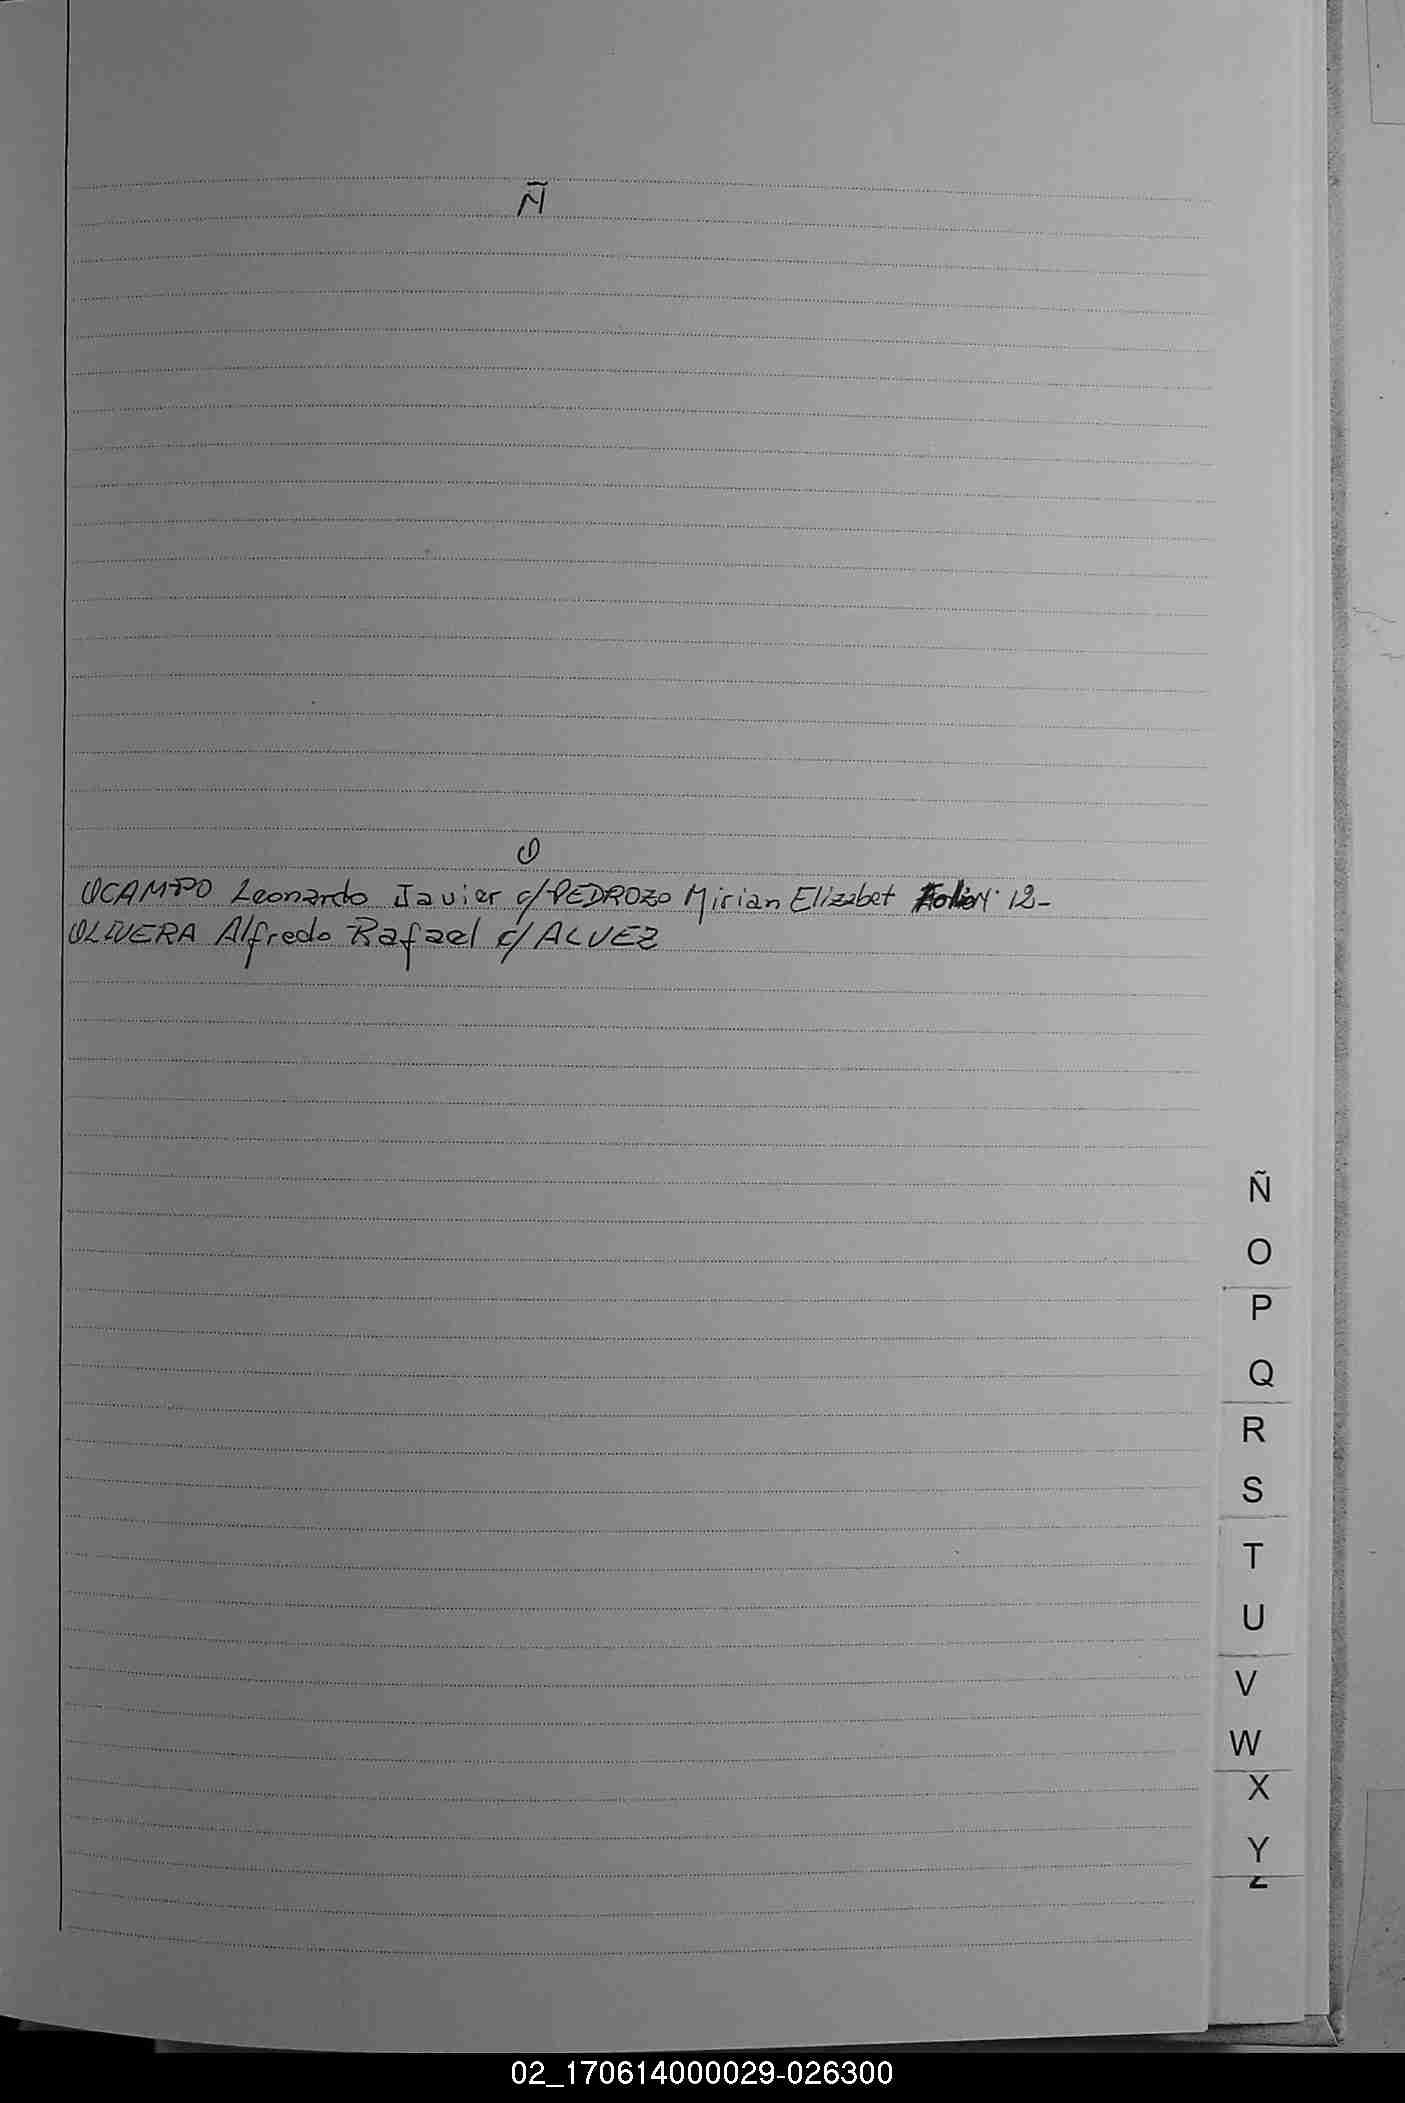 Ñ
O
OCAMPO Leonardo Javier c/PEDROZO Mirian Elizabet 12-
OLIVERA Alfredo Rafael c/ALVEZ
Ñ
O
P
Q
R
S
T
U
V
W
X
Y
Z
02_170614000029-026300